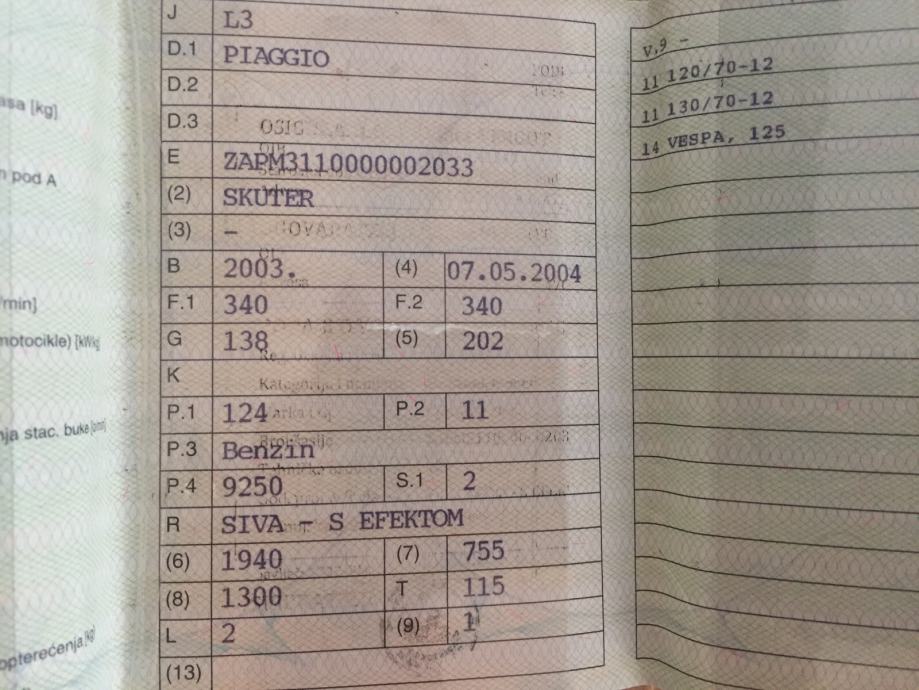 J L3
D.1 PIAGGIO
D.2
D.3
E ZAPM3110000002033
(2) SKUTER
(3) –
B 2003. (4) 07.05.2004
F.1 340 F.2 340
G 138 (5) 202
K
P.1 124 P.2 11
P.3 Benzin
P.4 9250 S.1 2
R SIVA – S EFEKTOM
(6) 1940 (7) 755
(8) 1300 T 115
L 2 (9) 1
(13)
asa [kg]
n pod A
/min]
motocikle) [kW/kg]
nja stac. buke
opterećenja [kg]
v.9 –
11 120/70-12
11 130/70-12
14 VESPA, 125